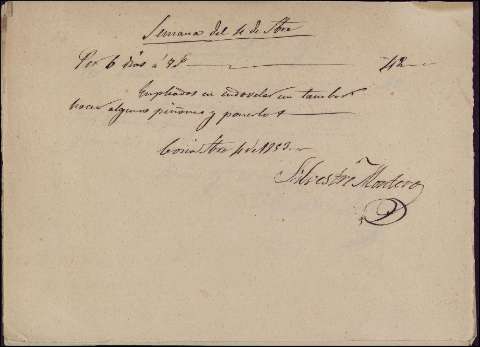 Semana del 4 de Sbre
Por 6 dias á 7 r 42
Empleados en endovelar un tambor
hacer algunos piñones y ponerlos
Coria Sbre 4 de 1853
Silvestre Montero